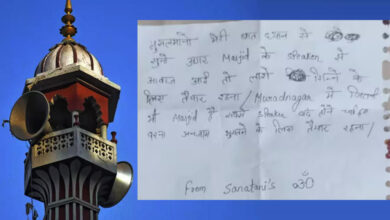 मुसलमानो मेरी बात ध्यान से
सुनो अगर Masjid के Speaker से
आवाज आई तो लाशे गिनने के
लिए तैयार रहना / Muradnagar में जितनी
भी Masjid है सबके Speaker बंद होने चाहिए
वरना अन्जाम भुगतने के लिए तैयार रहना /
From Sanatani's ॐ